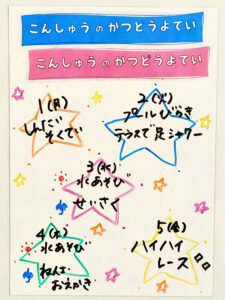 こんしゅうのかつどうよてい
こんしゅうのかつどうよてい
1(月)
しんたい
そくてい
2(火)
プールびらき
テラスで足シャワー
3(水)
水あそび
せいさく
4(木)
水あそび
ねんど
おえかき
5(金)
ハイハイ
レース